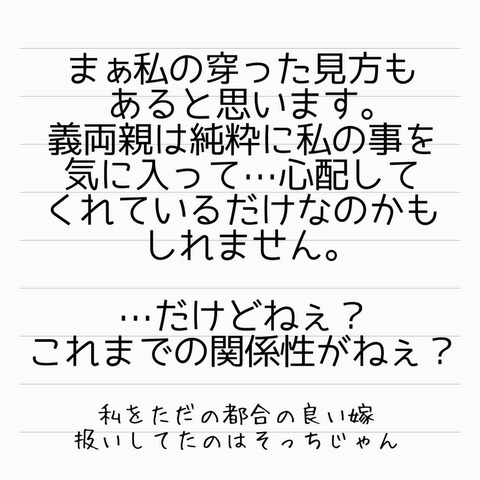 まぁ私の穿った見方も
あると思います。
義両親は純粋に私の事を
気に入って…心配して
くれているだけなのかも
しれません。
…だけどねぇ？
これまでの関係性がねぇ？
私をただの都合の良い嫁
扱いしてたのはそっちじゃん